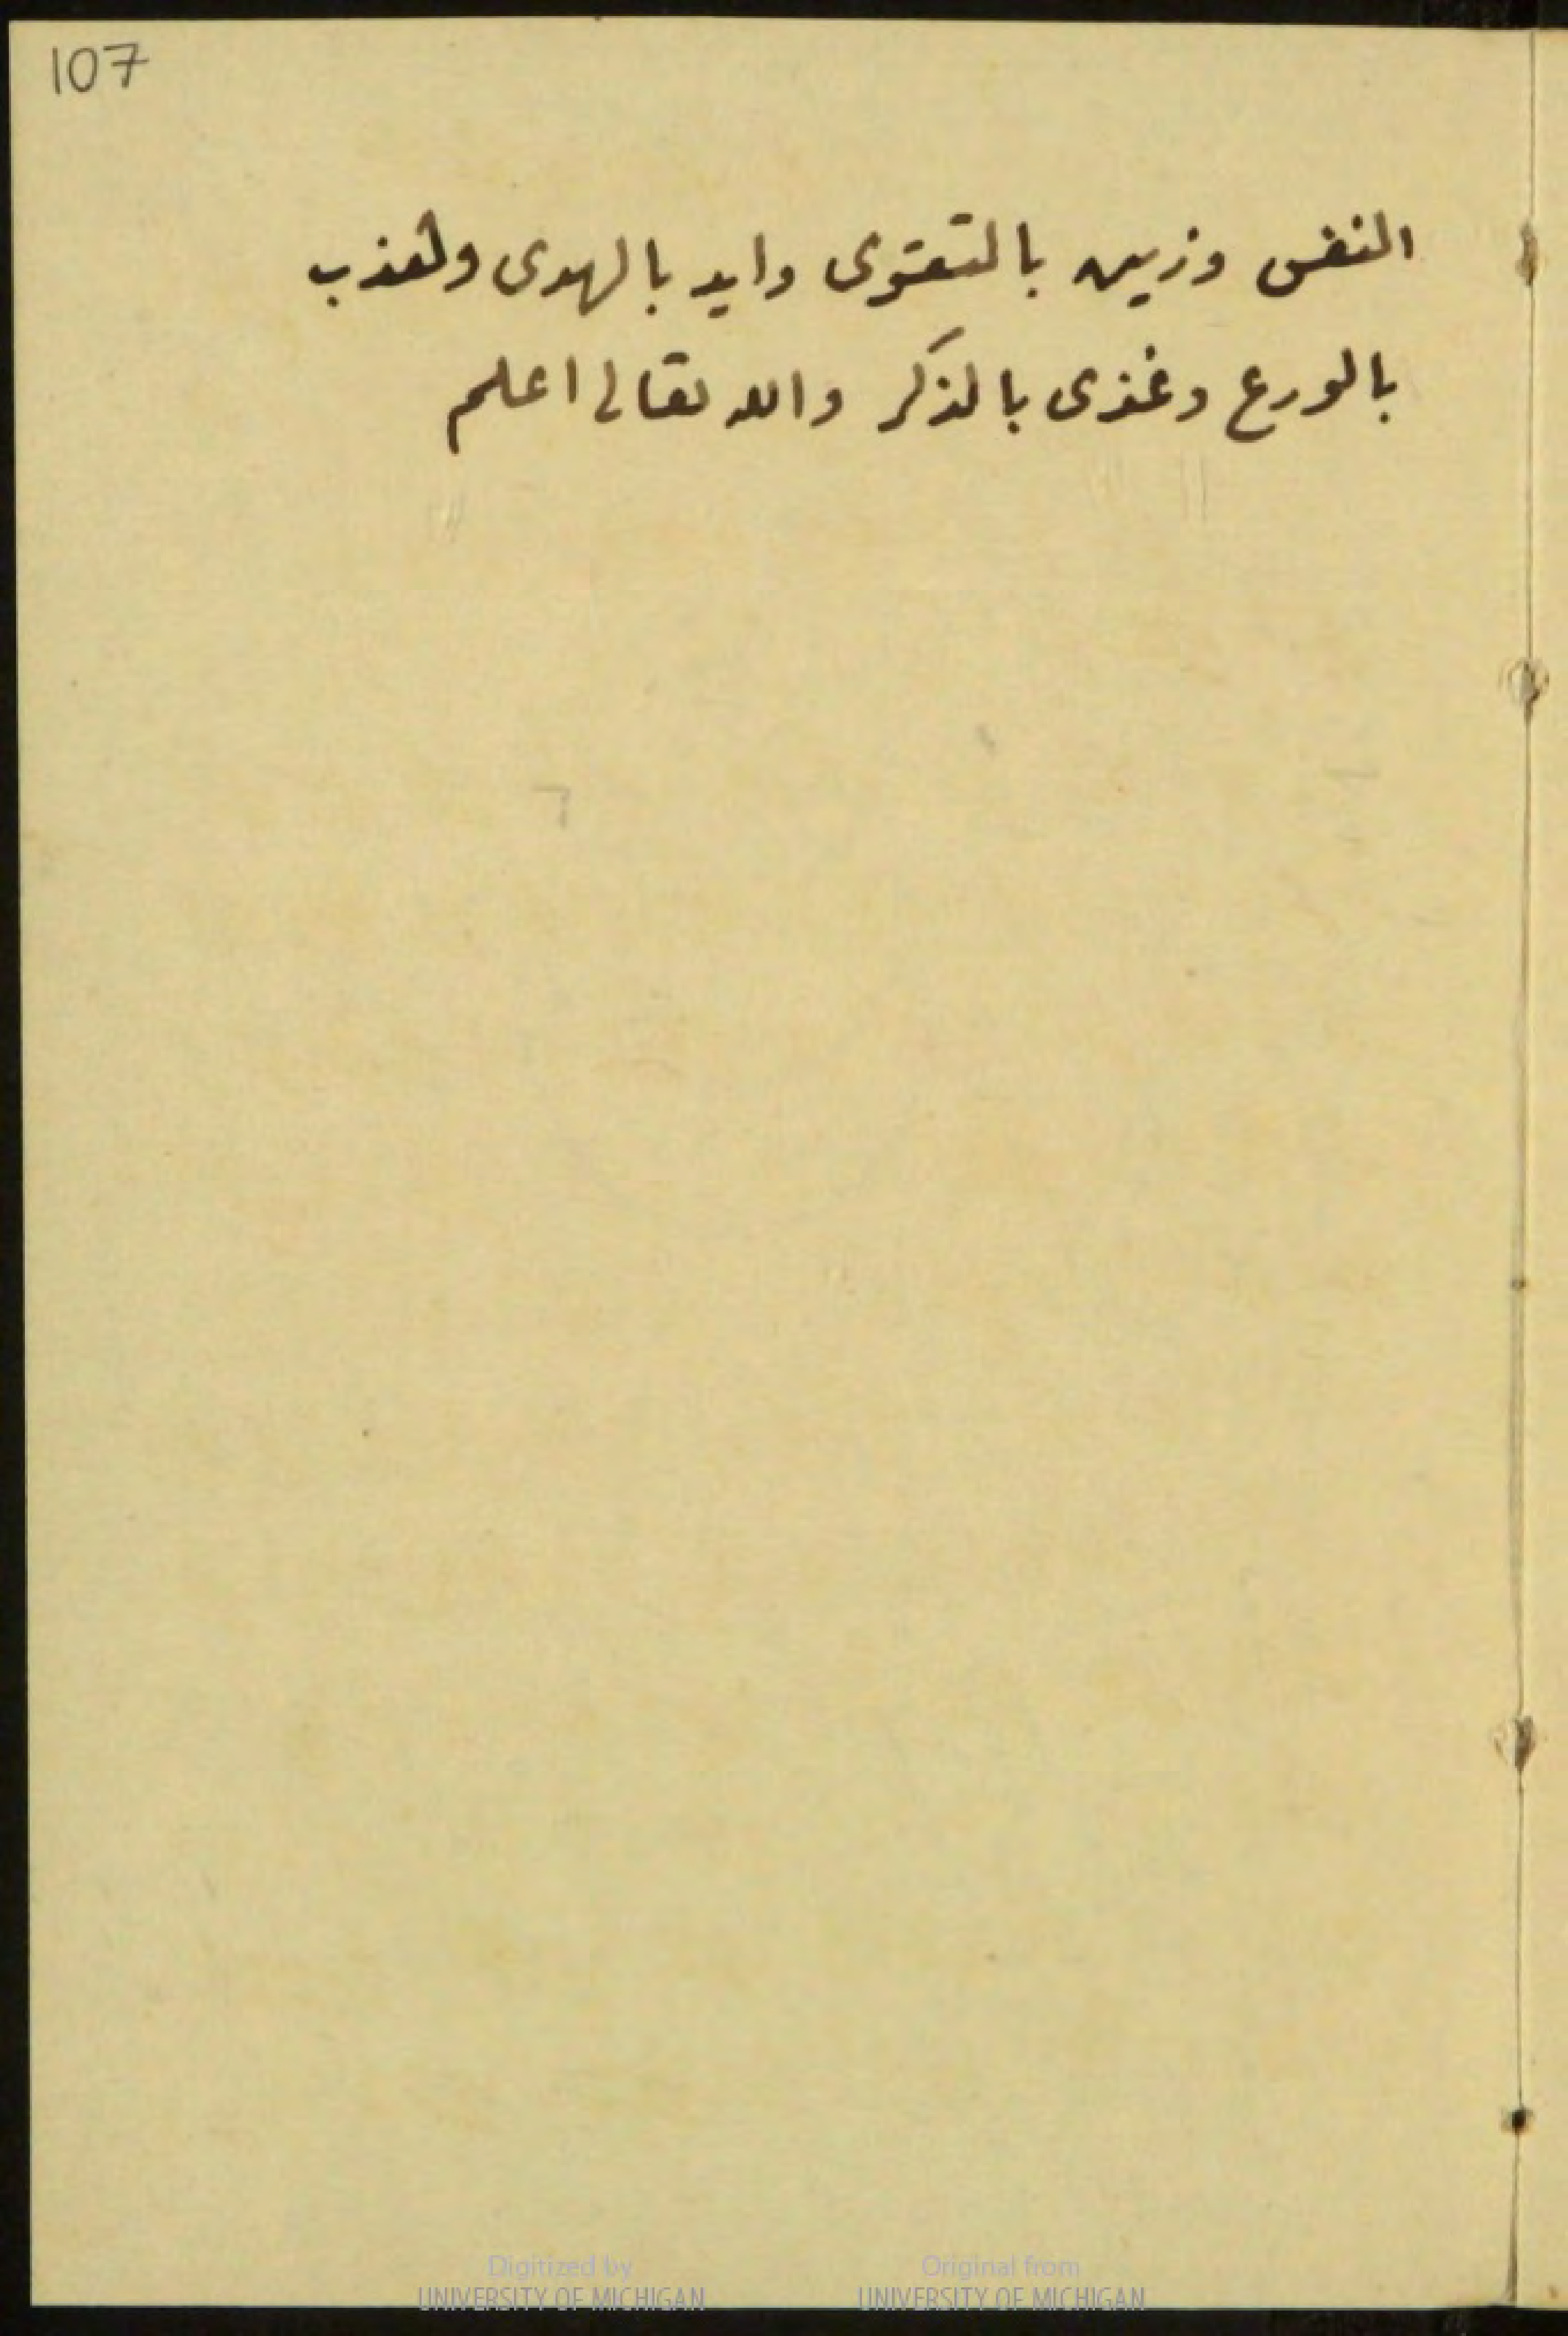 107
النفس وزين بالتقوى وايد بالهدى وتعذب
بالورع وغذى بالذكر والله تعالى اعلم
Digitized by
UNIVERSITY OF MICHIGAN
Original from
UNIVERSITY OF MICHIGAN